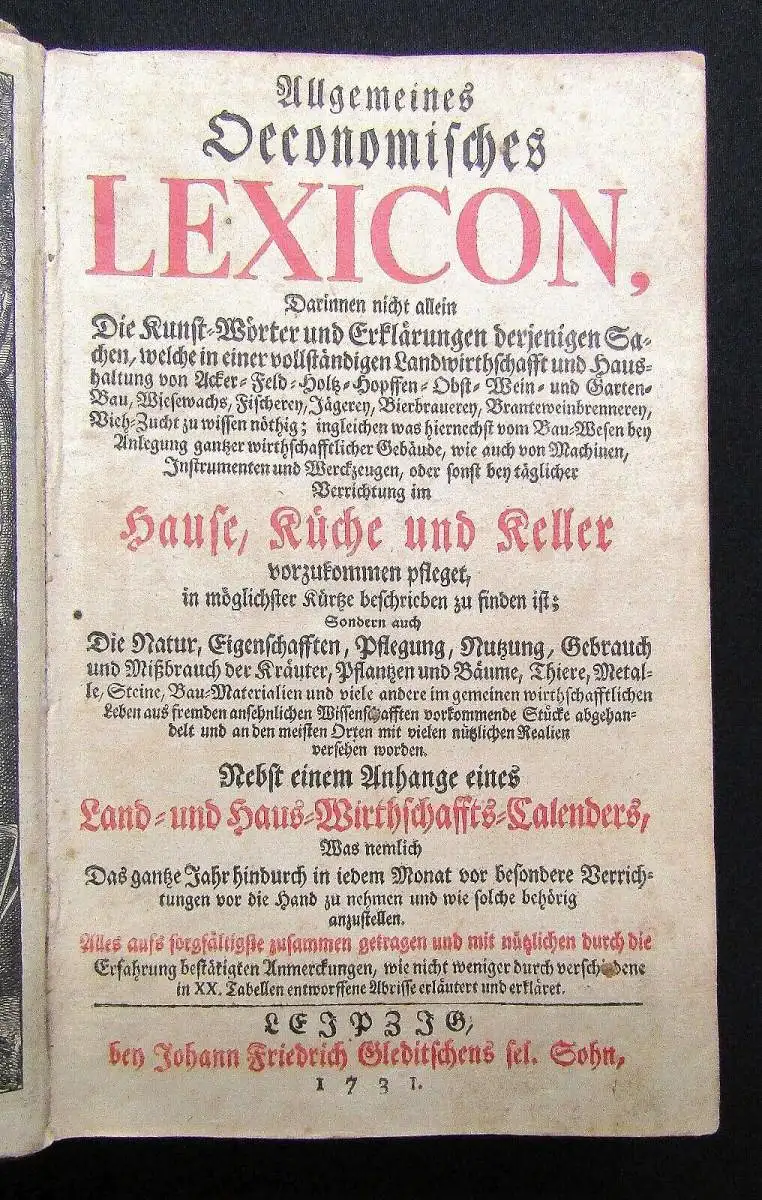 Allgemeines
Oeconomisches
LEXICON,
Darinnen nicht allein
Die Kunst-Wörter und Erklärungen derjenigen Sa-
chen, welche in einer vollständigen Landwirthschafft und Haus-
haltung von Acker- Feld- Holtz- Hopffen- Obst- Wein- und Garten-
Bau, Wiesewachs, Fischerey, Jägerey, Bierbrauerey, Branteweinbrennerey,
Vieh-Zucht zu wissen nöthig; ingleichen was hiernechst vom Bau-Wesen bey
Anlegung gantzer wirthschafftlicher Gebäude, wie auch von Machinen,
Instrumenten und Werckzeugen, oder sonst bey täglicher
Verrichtung im
Hause, Küche und Keller
vorzukommen pfleget,
in möglichster Kürtze beschrieben zu finden ist;
Sondern auch
Die Natur, Eigenschafften, Pflegung, Nutzung, Gebrauch
und Mißbrauch der Kräuter, Pflantzen und Bäume, Thiere, Metal-
le, Steine, Bau-Materialien und viele andere im gemeinen wirthschafftlichen
Leben aus fremden ansehnlichen Wissenschafften vorkommende Stücke abgehan-
delt und an den meisten Orten mit vielen nützlichen Realien
versehen worden.
Nebst einem Anhange eines
Land- und Haus-Wirthschaffts-Calenders,
Was nemlich
Das gantze Jahr hindurch in iedem Monat vor besondere Verrich-
tungen vor die Hand zu nehmen und wie solche behörig
anzustellen.
Alles aufs sorgfältigste zusammen getragen und mit nützlichen durch die
Erfahrung bestätigten Anmerckungen, wie nicht weniger durch verschiedene
in XX. Tabellen entworffene Abrisse erläutert und erkläret.
LEIPZIG,
bey Johann Friedrich Gleditschens sel. Sohn,
1731.